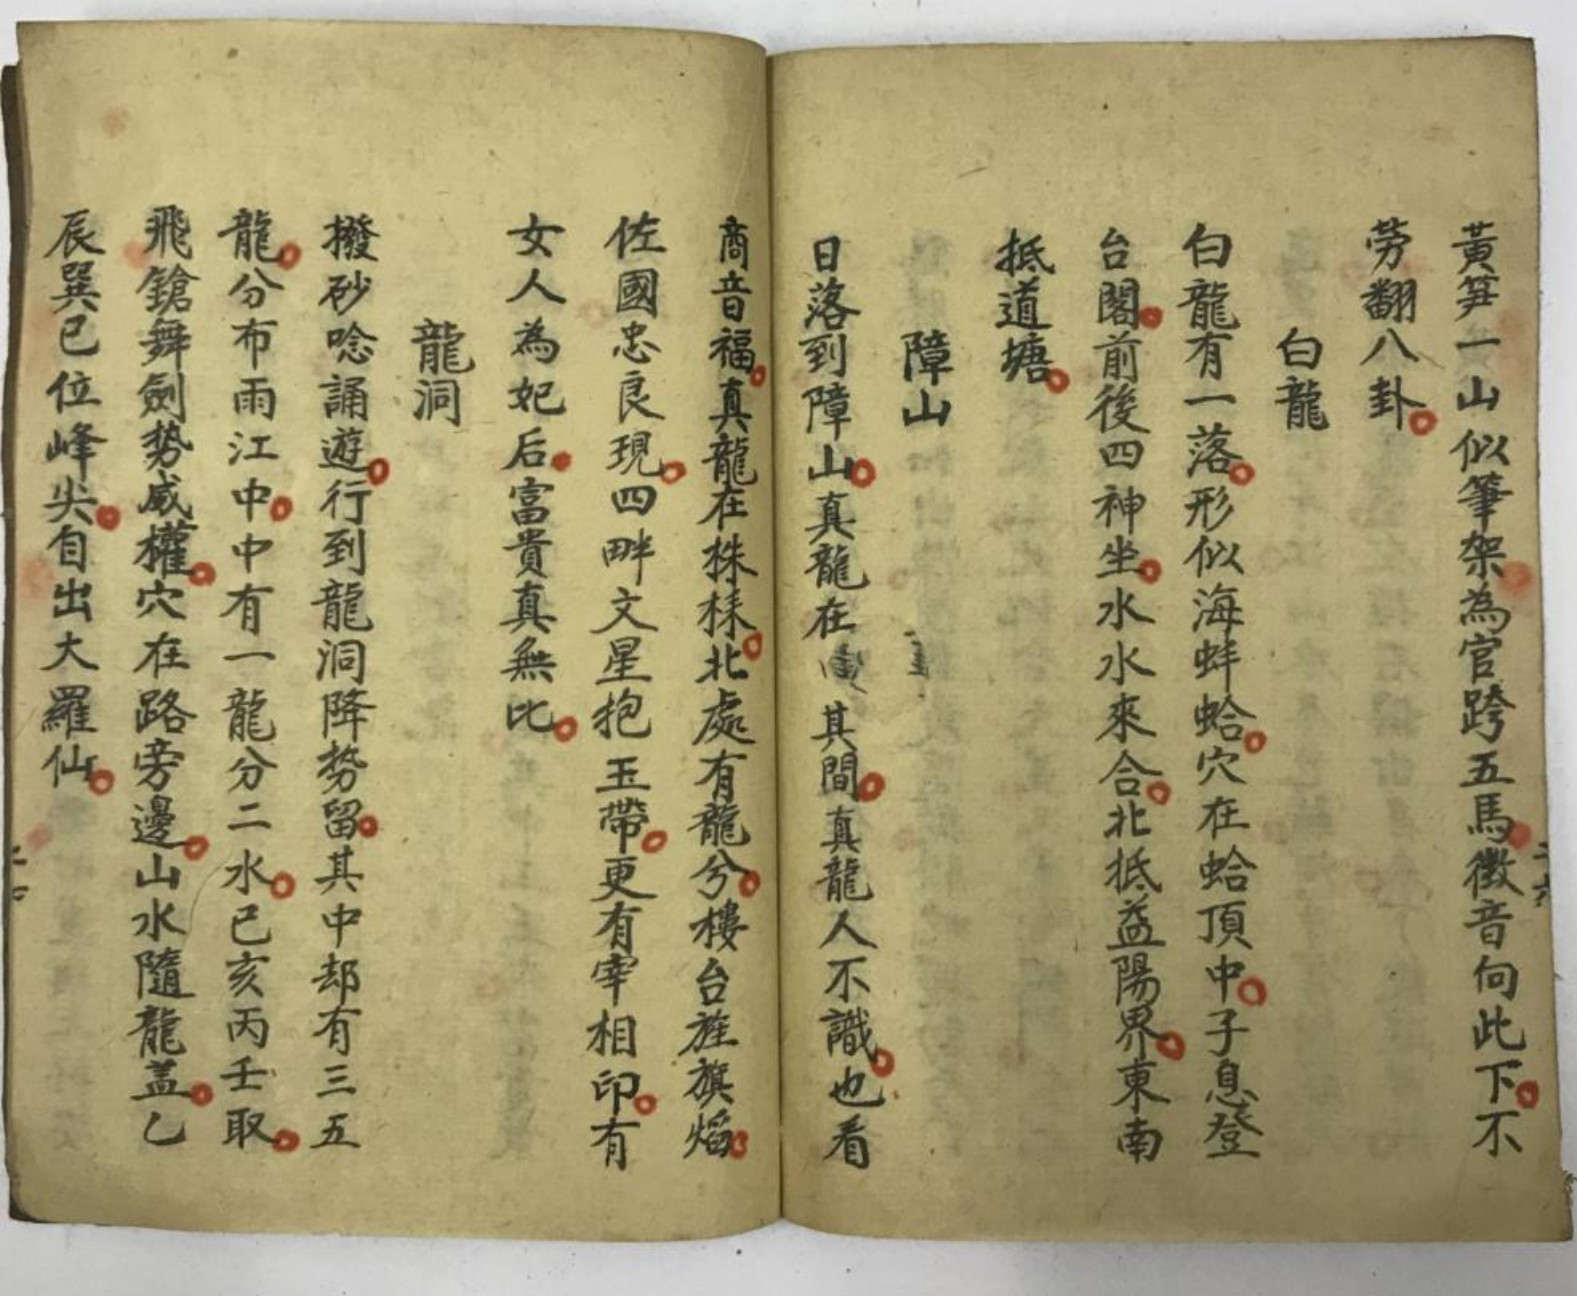 黃笋一山似筆架為官跨五馬徵音向此下不
勞翻八卦
白龍
白龍有一落形似海蚌蛤穴在蛤頂中子息登
台閣前後四神坐水水來合北抵益陽界東南
抵道塘
障山
日落到障山真龍在其間真龍人不識也看
商音福真龍在株株北處有龍兮樓台旌旗焰
佐國忠良現四畔文星抱玉帶更有宰相印有
女人為妃后富貴真無比
龍洞
撥砂唸誦遊行到龍洞降勢留其中却有三五
龍分布雨江中中有一龍分二水已亥丙壬取
飛鎗舞劍勢威權穴在路旁邊山水隨龍盖乙
辰巽已位峰尖自出大羅仙
二六